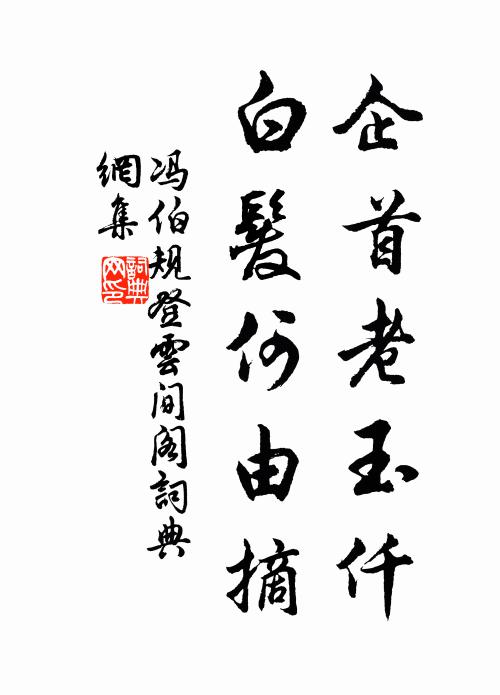 企首老玉仟
白髮何由摘
冯伯規登雲间阁詞典
網集
詞典
网印